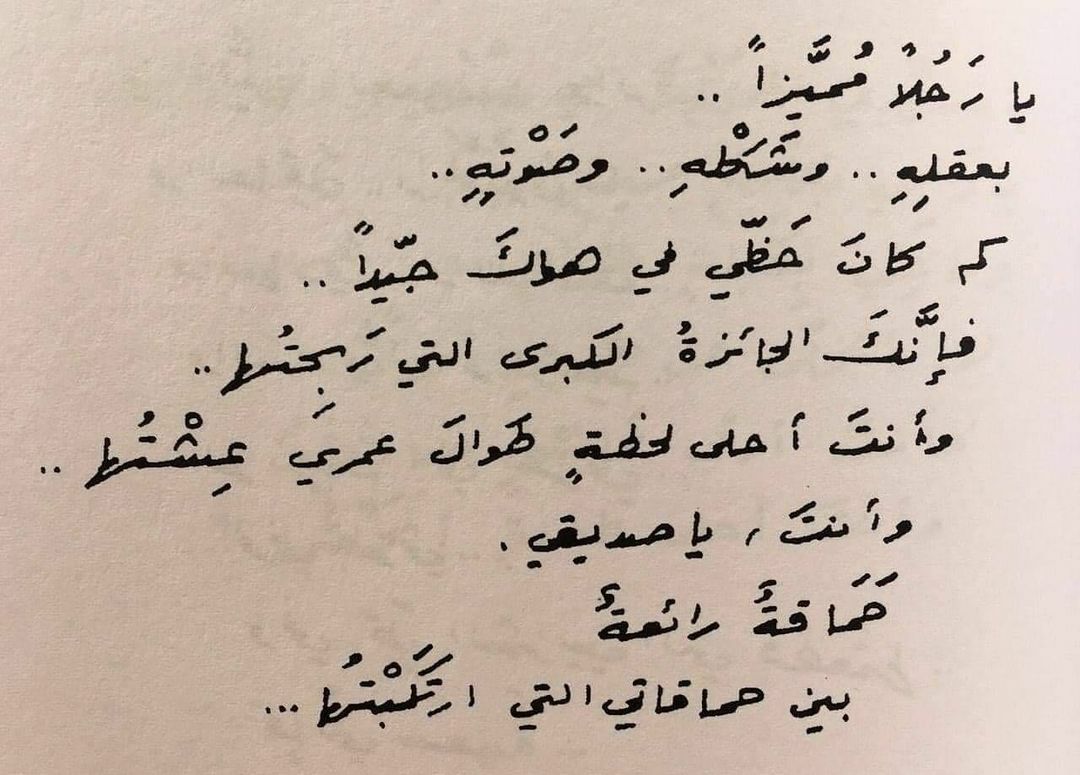 يا رَجُلاً مُميَّزاً ..
بعقلِهِ .. وشَكْلهِ .. وصَوْتهِ ..
كم كانَ حَظّي في هواكَ جيّداً ..
فإنَّكَ الجائزةُ الكبرى التي رَبِحتُها ..
وأنتَ أحلى لحظةٍ طَوالَ عمري عِشْتُها ..
وأنتَ ، يا صديقي .
حَمَاقةٌ رائعةٌ
بين حماقاتي التي ارتَكَبْتُها ...